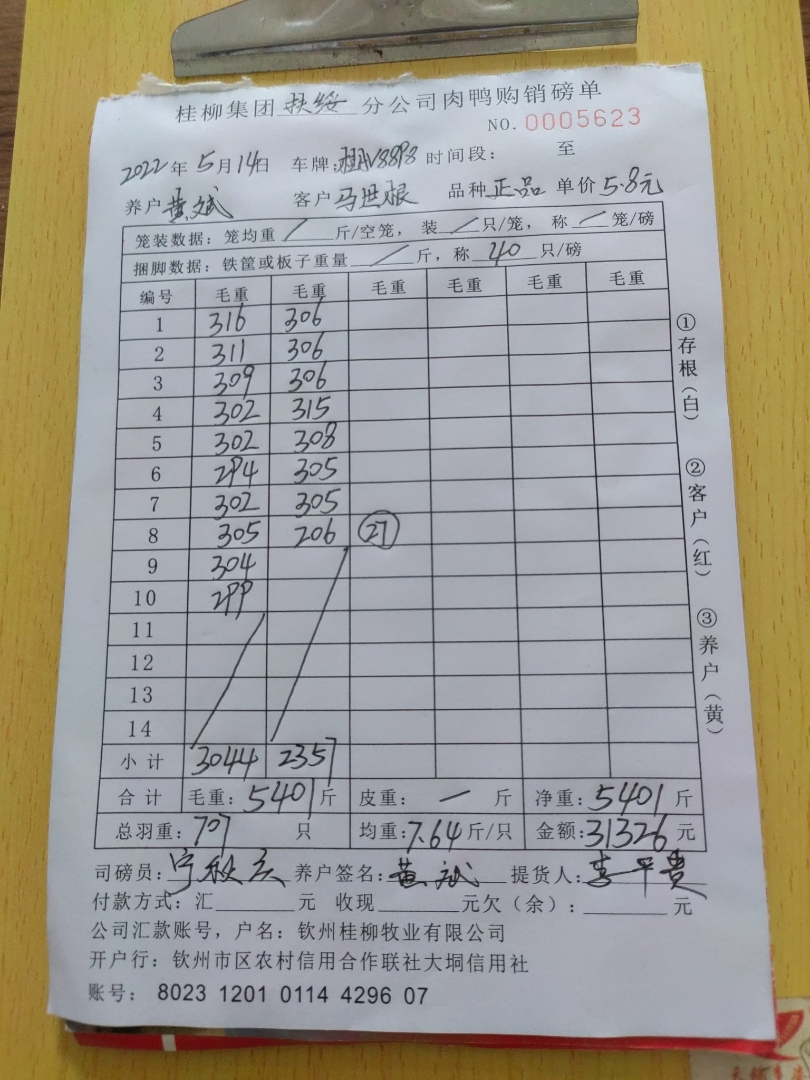 桂柳集团扶绥分公司肉鸭购销磅单
NO. 0005623
2022年5月14日 车牌: 时间段: 至
养户黄斌 客户马世根 品种正品 单价5.8元
笼装数据:笼均重/斤/空笼,装/只/笼,称/笼/磅
捆脚数据:铁筐或板子重量/斤,称40只/磅
编号 毛重 毛重 毛重 毛重 毛重 毛重
1 316 306
2 311 306
3 309 306
4 302 315
5 302 308
6 294 305
7 302 305
8 305 206 27
9 304
10 299
11
12
13
14
小计 3044 2357
合计 毛重:5401斤 皮重:一斤 净重:5401斤
总羽重:707只 均重:7.64斤/只 金额:31326元
司磅员:宁秋 养户签名:黄斌 提货人:李平贵
付款方式:汇______元 收现______元欠(余):______元
公司汇款账号,户名:钦州桂柳牧业有限公司
开户行:钦州市区农村信用合作联社大垌信用社
账号: 8023 1201 0114 4296 07
①存根(白)
②客户(红)
③养户(黄)